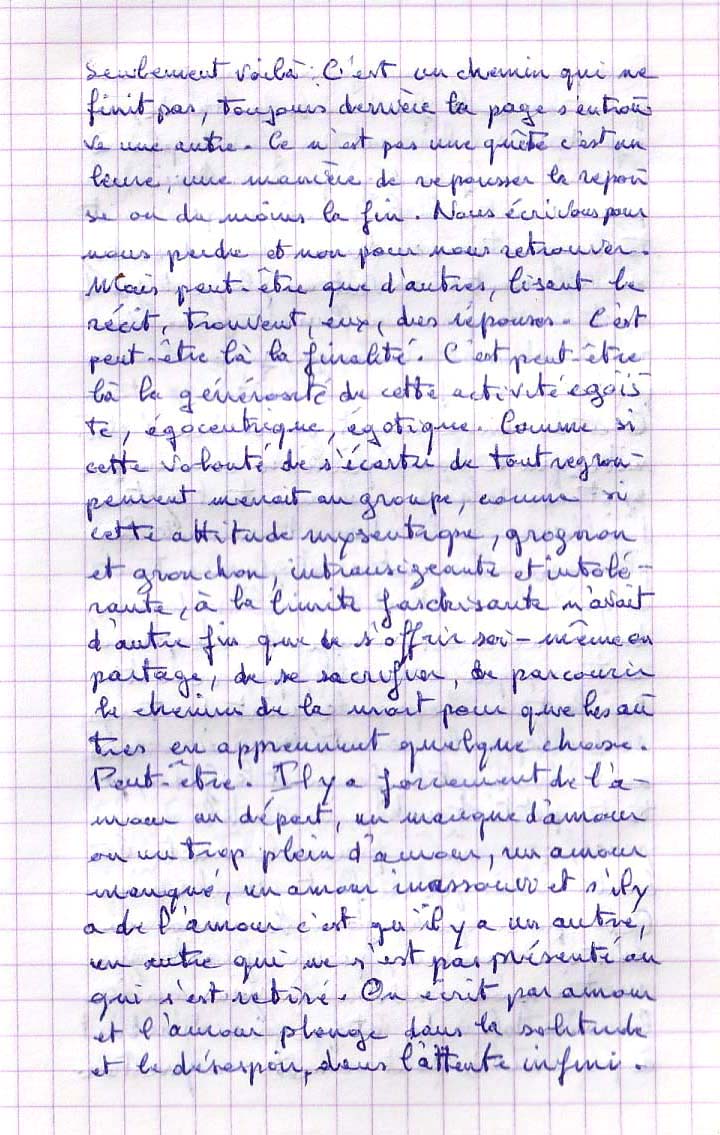 Seulement voilà : C'est un chemin qui ne
finit pas, toujours derrière la page s'entrou-
ve une autre. Ce n'est pas une quête c'est un
leurre, une manière de repousser la répon
se ou du moins la fin. Nous écrivons pour
nous perdre et non pour nous retrouver.
Mais peut-être que d'autres, lisant le
récit, trouvent, eux, des réponses. C'est
peut-être là la finalité. C'est peut-être
là la générosité de cette activité égoïs
te, égocentrique, égotique. Comme si
cette volonté de s'écarter de tout regrou-
pement menait au groupe, comme si
cette attitude mysentrope, grognon
et gronchon, intransigeante et intolé-
rante, à la limite fascisante n'avait
d'autre fin que de s'offrir soi-même en
partage, de se sacrifier, de parcourir
le chemin de la mort pour que les au
tres en apprennent quelque chose.
Peut-être. Il y a forcément de l'a-
mour au départ, un manque d'amour
ou un trop plein d'amour, un amour
manqué, un amour inassouvi et s'il y
a de l'amour c'est qu'il y a un autre,
un autre qui ne s'est pas présenté ou
qui s'est retiré. On écrit par amour
et l'amour plonge dans la solitude
et le désespoir, dans l'attente infini.